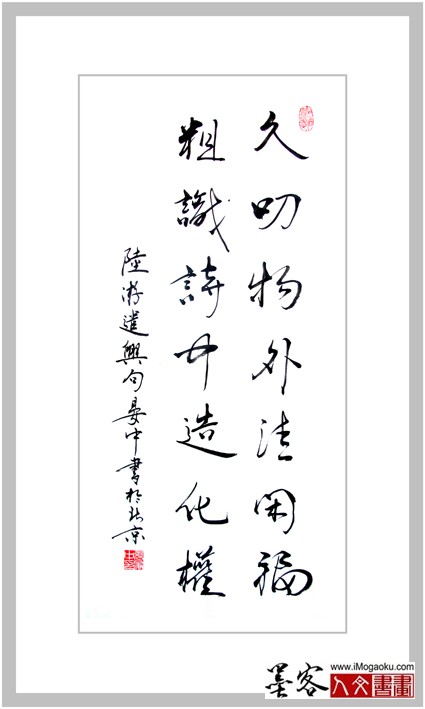 久叨物外清閑福
粗識詩中造化權
陸游遣興句晏中書於北京
墨客
www.iMogaoku.com
人文書畫